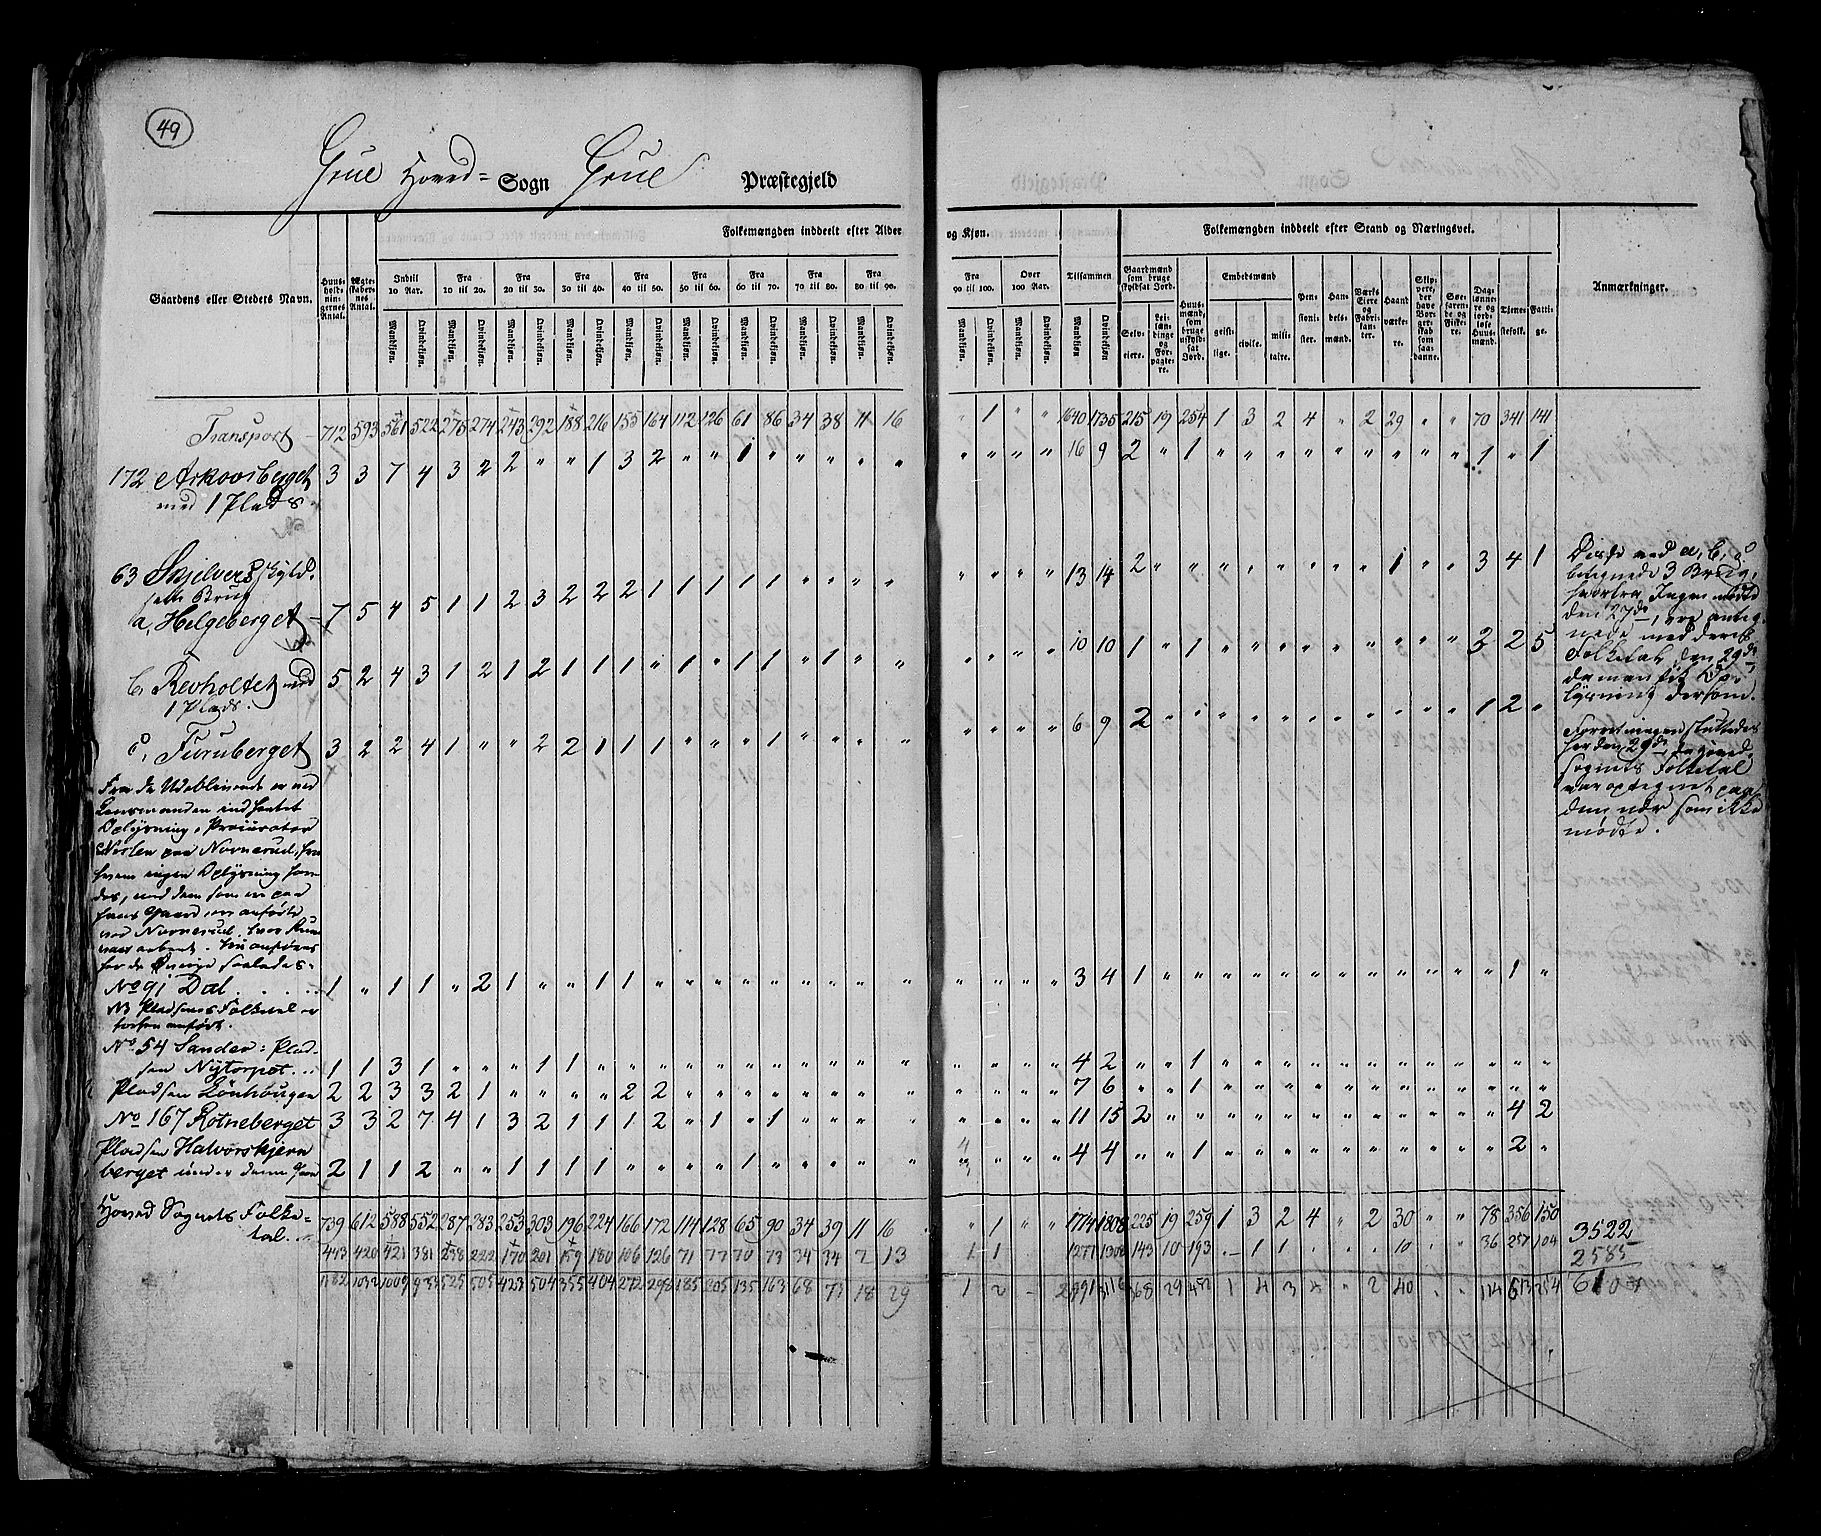 49
Grue Hoved= Sogn Grue Præstegjeld
Gaardens eller Stedets Navn.
Huusholdningernes Antal.
Ægteskabernes Antal.
Folkemængden inddeelt efter Alder og Kjøn.
Indtil 10 Aar. Fra 10 til 20. Fra 20 til 30. Fra 30 til 40. Fra 40 til 50. Fra 50 til 60. Fra 60 til 70. Fra 70 til 80. Fra 80 til 90. Fra 90 til 100. Over 100 Aar. Tilsammen
Mandkjøn. Qvindekjøn.
Folkemængden inddeelt efter Stand og Næringsvei.
Gaardmænd som bruge skyldsat Jord. Selveiere. Leilændinge og Forpagtere.
Huusmænd, som bruge uskyldsat Jord.
Embedsmænd geistlige. civile. militaire.
Pensionister. Handelsmænd. Værks Eiere og Fabrikanter. Haandværkere. Skippere, der have Borgerskab som saadanne. Søefarende og Fiskere. Daglønnere og jordløse Huusmænd. Tjenestefolk. Fattige.
Anmærkninger.
Transport 712 593 561 522 275 274 243 292 188 216 155 164 112 126 61 86 34 38 11 16 " 1 " " 1640 1735 215 19 254 1 3 2 4 " 2 29 " " 70 341 141
172 Arkovsberget 3 3 7 4 3 2 2 " " 1 3 2 " " 1 " " " " " " " " " 16 9 2 " 1 " " " " " " " " " 1 " 1
med 1 Plads
63 Skjelver, skyld-
satte Brug
a, Helgeberget 7 5 4 5 1 1 2 3 2 2 2 1 1 1 1 1 " " " " " " " " 13 14 2 " " " " " " " " 1 " " 3 4 1
b, Revholtet med 5 2 4 3 1 2 1 2 1 1 1 " 1 " 1 1 " 1 " " " " " " 10 10 1 " 1 " " " " " " " " " 3 2 5
1 Plads.
c, Furuberget 3 2 2 4 1 " " 2 2 1 1 1 " " " 1 " " " " " " " " 6 9 2 " " " " " " " " " " " 1 2 "
Disse med a, b, c
betegnede 3 Brug,
hvorfra Ingen mødte
den 27de
Folketal den 29de
da man fik Op-
lysning dersom.
her den 29de, da Hoved
sognets Folketal
var optegnet paa
dem nær som ikke
mødte.
Fra de Udeblivende er ved
Lensmanden indhentet
Oplysning, Procurator
paa Nornerud, fra
hvem ingen Oplysning
des, med dem som er paa
hans Gaard, er anførte
ved Nornerud, hvor
for de Øvrige saaledes:
No 91 Dal 1 " 1 1 " 2 1 " " 1 1 " " " " " " " " " " " " " 3 4 1 " " " " " " " " " " " " 1 "
NB Pladsenes Folketal er
forhen anført.
No 54 Sander: Plad-
sen Nytorpet 1 1 3 1 " " " 1 1 " " " " " " " " " " " " " " " 4 2 " " 1 " " " " " " " " " " " "
Pladsen Lønhougen 2 2 3 3 2 1 " " " " 2 2 " " " " " " " " " " " " 7 6 " " 1 " " " " " " " " " " " "
No 167 Rotneberget 3 3 2 7 4 1 3 2 1 1 1 2 " 1 " 1 " " " " " " " " 11 15 2 " " " " " " " " " " " " 4 2
Pladsen Halvorskjern
berget under denne Gaard 2 1 1 2 " " 1 1 1 1 " " " " 1 " " " " " " " " " 4 4 " " 1 " " " " " " " " " " 2 "
Hoved Sognets Folke-
tal 739 612 588 552 287 283 253 303 196 224 166 172 114 128 65 90 34 39 11 16 " 1 " " 1714 1808 225 19 259 1 3 2 4 " 2 30 " " 78 356 150 3522
443 420 421 381 238 222 170 201 159 180 106 126 71 77 70 73 34 34 7 13 1 1 1277 1308 143 10 193 - 1 1 10 36 257 104 2585
1182 1032 1009 933 525 505 423 504 355 404 272 298 185 205 135 163 68 73 18 29 1 2 - 2991 3116 368 29 452 1 4 3 4 " 2 40 114 613 254 6107